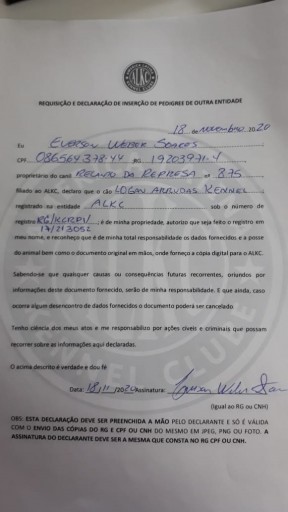 ALKC
REQUISIÇÃO E DECLARAÇÃO DE INSERÇÃO DE PEDIGREE DE OUTRA ENTIDADE
18 de novembro 2020
Eu EVERSON WEBER SOARES
CPF 086564378-44 RG 19203971-4
proprietário do canil RECANTO DA REPRESA nº 875
filiado ao ALKC, declaro que o cão LOGAN ARRUDAS KENNEL
registrado na entidade ALKC sob o número de
registro RG/KCICPI/ é de minha propriedade, autorizo que seja feito o registro em
17/213052
meu nome, e reconheço que é de minha total responsabilidade os dados fornecidos e a posse
do animal bem como o documento original em mãos, onde forneço a cópia digital para o ALKC.
Sabendo-se que quaisquer causas ou consequências futuras recorrentes, oriundos por
informações deste documento fornecido, serão de minha responsabilidade. E que ainda, caso
ocorra algum desencontro de dados fornecidos o documento poderá ser cancelado.
Tenho ciência dos meus atos e me responsabilizo por ações cíveis e criminais que possam
recorrer sobre as informações aqui declaradas.
O acima descrito é verdade e dou fé
Data: 18/11/2020 Assinatura:
(Igual ao RG ou CNH)
OBS: ESTA DECLARAÇÃO DEVE SER PREENCHIDA A MÃO PELO DECLARANTE E SÓ É VÁLIDA
COM O ENVIO DAS CÓPIAS DO RG E CPF OU CNH DO MESMO EM JPEG, PNG OU FOTO. A
ASSINATURA DO DECLARANTE DEVE SER A MESMA QUE CONSTA NO RG CPF OU CNH.